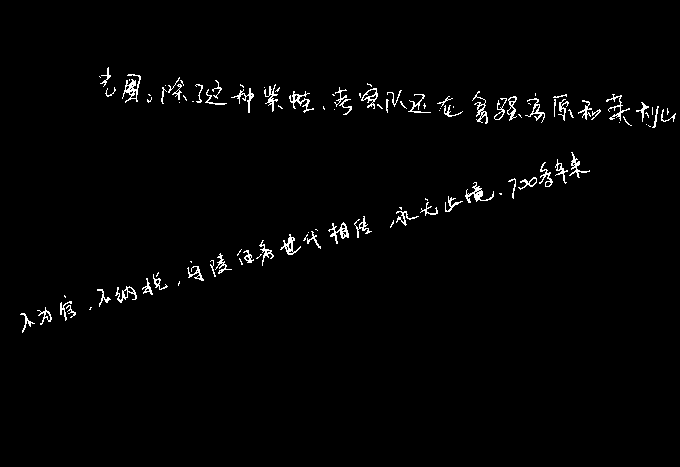 光圈。除了这种柴蛙,考察队还在高原和莱州山
不为官,不纳税,守陵任务世代相传 永无止境。700多年来